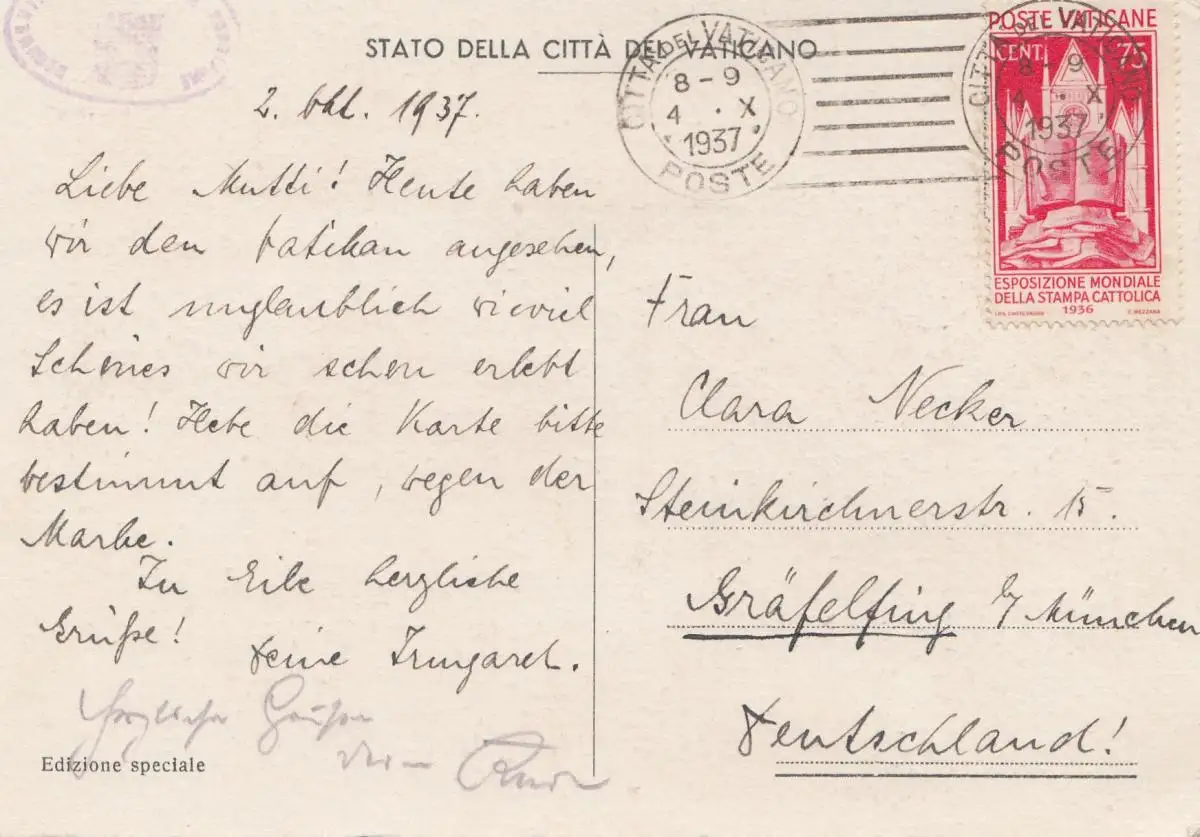 STATO DELLA CITTÀ DEL VATICANO
2. Okt. 1937.
Liebe Mutti! Heute haben
wir den Vatikan angesehen,
es ist unglaublich wieviel
Schönes wir schon erlebt
haben! Hebe die Karte bitte
bestimmt auf, wegen der
Marke.
In Eile herzliche
Grüße!
Deine Irmgard.
Herzliche Grüße
Edizione speciale
CITTA DEL VATICANO
8-9
4 · X
1937
POSTE
POSTE VATICANE
CENT. 75
CITTA DEL VATICANO
8-9
4 · X
1937
POSTE
ESPOSIZIONE MONDIALE
DELLA STAMPA CATTOLICA
1936
C. MEZZANA
Frau
Clara Necker
Steinkirchnerstr. 15.
Gräfelfing b/ München
Deutschland!